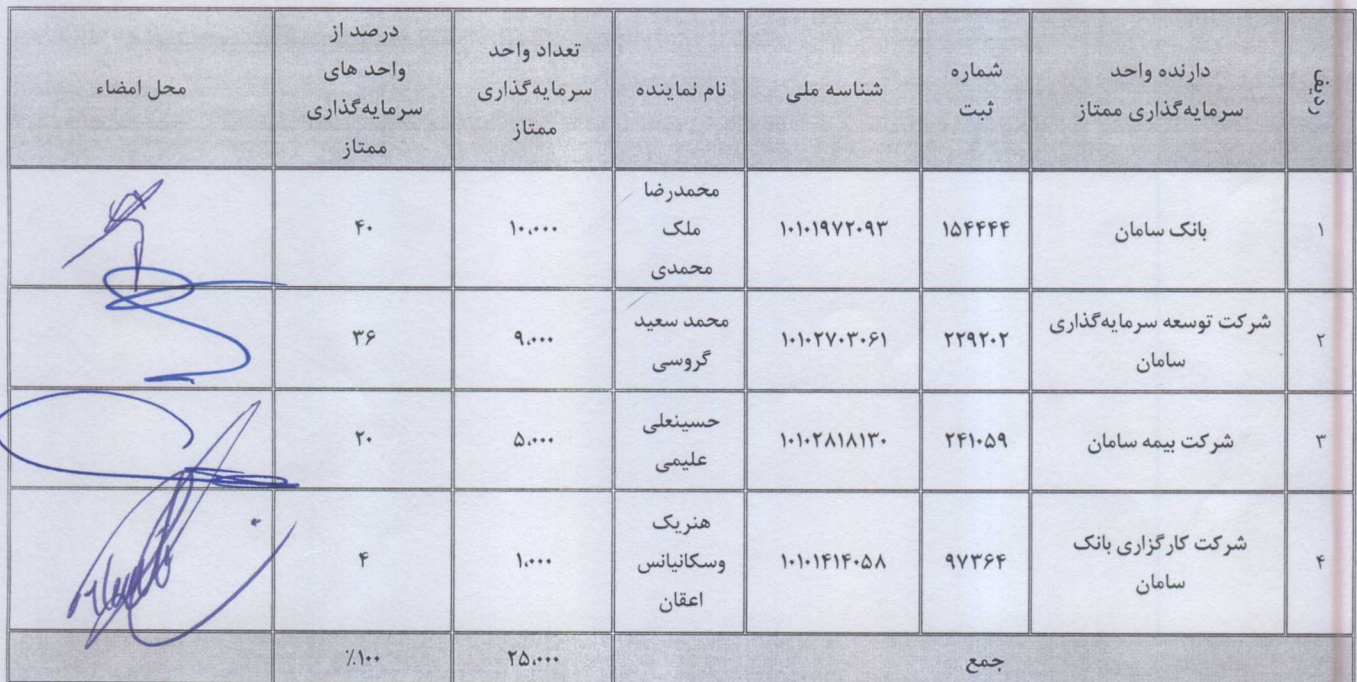 ردیف
دارنده واحد
سرمایه‌گذاری ممتاز
شماره
ثبت
شناسه ملی
نام نماینده
تعداد واحد
سرمایه‌گذاری
ممتاز
درصد از
واحد های
سرمایه‌گذاری
ممتاز
محل امضاء
۱
بانک سامان
۱۵۴۴۴۴
۱۰۱۰۱۹۷۲۰۹۳
محمدرضا
ملک
محمدی
۱۰،۰۰۰
۴۰
۲
شرکت توسعه سرمایه‌گذاری
سامان
۲۲۹۲۰۲
۱۰۱۰۲۷۰۳۰۶۱
محمد سعید
گروسی
۹،۰۰۰
۳۶
۳
شرکت بیمه سامان
۲۴۱۰۵۹
۱۰۱۰۲۸۱۸۱۳۰
حسینعلی
علیمی
۵،۰۰۰
۲۰
۴
شرکت کارگزاری بانک
سامان
۹۷۳۶۴
۱۰۱۰۱۴۱۴۰۵۸
هنریک
وسکانیانس
اعقان
۱،۰۰۰
۴
جمع
۲۵،۰۰۰
٪۱۰۰